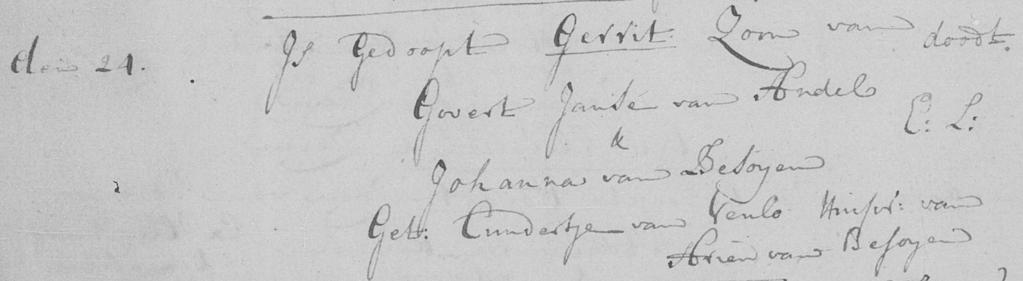 den 24. Is Gedoopt Gerrit Zoon van doodt.
Govert Janse van Andel
&
E: L:
Johanna van Besoyen
Get: Cundertje van Venlo Huisvr: van
Arien van Besoyen